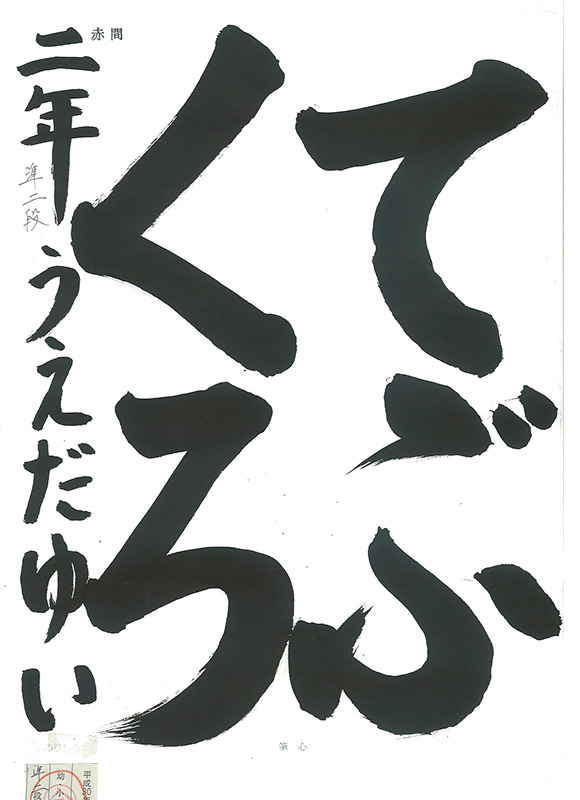 てぶ
くろ
赤間
二年 うえだゆい
準二段
筆心
平成30年
幼・小
準二段